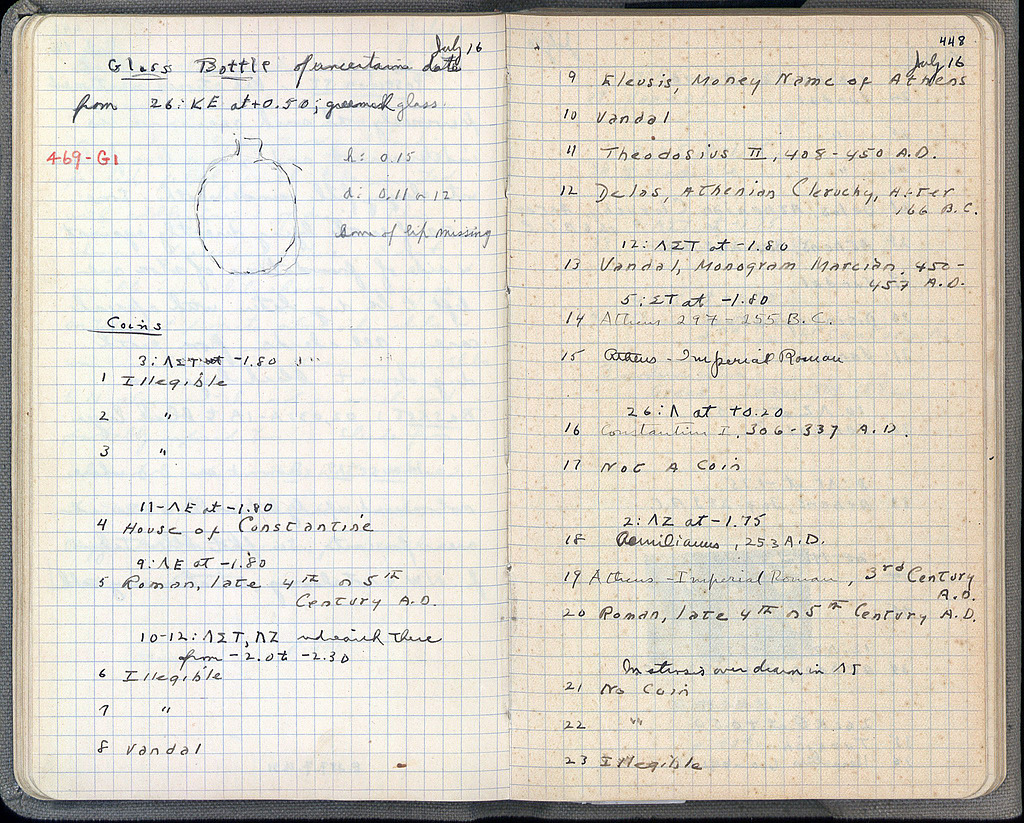 July 16
Glass Bottle of uncertain date
from 26:ΚΕ at +0.50; greenish glass
469-G1
h: 0.15
d: 0.11 12.
Some of lip missing
Coins
3:ΛΣΤ at -1.80
1 Illegible
2 "
3 "
11-ΛΕ at -1.80
4 House of Constantine
9:ΛΕ at -1.80
5 Roman, late 4th or 5th
Century A.D.
10-12:ΛΣΤ, ΛΖ there
from -2.0 to -2.30
6 Illegible
7 "
8 Vandal
448
July 16
9 Eleusis, Money Name of Athens
10 Vandal
11 Theodosius II, 408-450 A.D.
12 Delos, Athenian Cleruchy, After
166 B.C.
12:ΛΣΤ at -1.80
13 Vandal, Monogram Marcian, 450-
457 A.D.
5:ΣΤ at -1.80
14 Athens 297-255 B.C.
15 Athens - Imperial Roman
26:Λ at +0.20
16 Constantine I, 306-337 A.D.
17 Not A Coin
2:ΛΖ at -1.75
18 Aemilianus, 253 A.D.
19 Athens - Imperial Roman, 3rd Century
A.D.
20 Roman, late 4th or 5th Century A.D.
over drain in
21 No Coin
22 "
23 Illegible